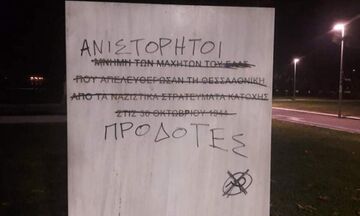 ΑΝΙΣΤΟΡΗΤΟΙ
ΜΝΗΜΗ ΤΩΝ ΜΑΧΗΤΩΝ ΤΟΥ ΕΛΑΣ
ΠΟΥ ΑΠΕΛΕΥΘΕΡΩΣΑΝ ΤΗ ΘΕΣΣΑΛΟΝΙΚΗ
ΑΠΟ ΤΑ ΝΑΖΙΣΤΙΚΑ ΣΤΡΑΤΕΥΜΑΤΑ ΚΑΤΟΧΗΣ
ΣΤΙΣ 30 ΟΚΤΩΒΡΙΟΥ 1944
ΠΡΟΔΟΤΕΣ